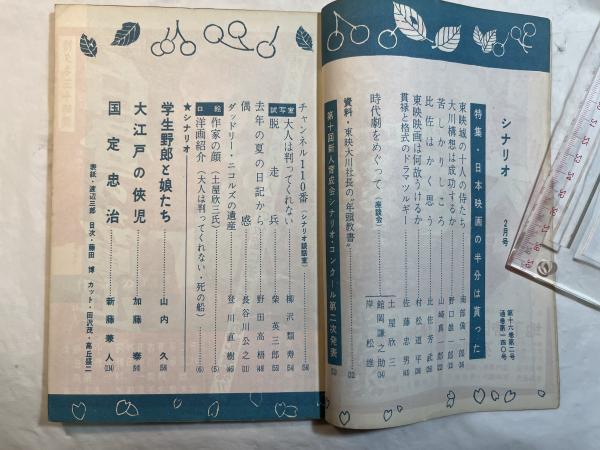 シナリオ
2月号
第十六巻第二号
通巻第一四〇号
特集・日本映画の半分は貰った
東映城の十人の侍たち
南部僑一郎
大川構想は成功するか
野口雄一郎
苦しかりしころ
山崎真一郎
比佐はかく思う
比佐芳武
東映映画は何故うけるか
村松道平
貫禄と格式のドラマツルギー
佐藤忠男
時代劇をめぐって(座談会)
土屋欣三
館岡謙之助
岸松雄
資料・東映大川社長の“年頭教書”
第十回新人育成会シナリオ・コンクール第二次発表
チャンネル110番(シナリオ談話室)
試写室
大人は判ってくれない
柳沢類寿
脱走兵
柴英三郎
去年の夏の日記から
野田高梧
偶感
長谷川公之
ダッドリー・ニコルズの遺産
登川直樹
口絵
作家の顔(土屋欣三氏)
洋画紹介(大人は判ってくれない・死の船)
★シナリオ
学生野郎と娘たち
山内久
大江戸の侠児
加藤泰
国定忠治
新藤兼人
表紙・渡辺三郎 目次・藤田博 カット・田沢茂・高丘譲二